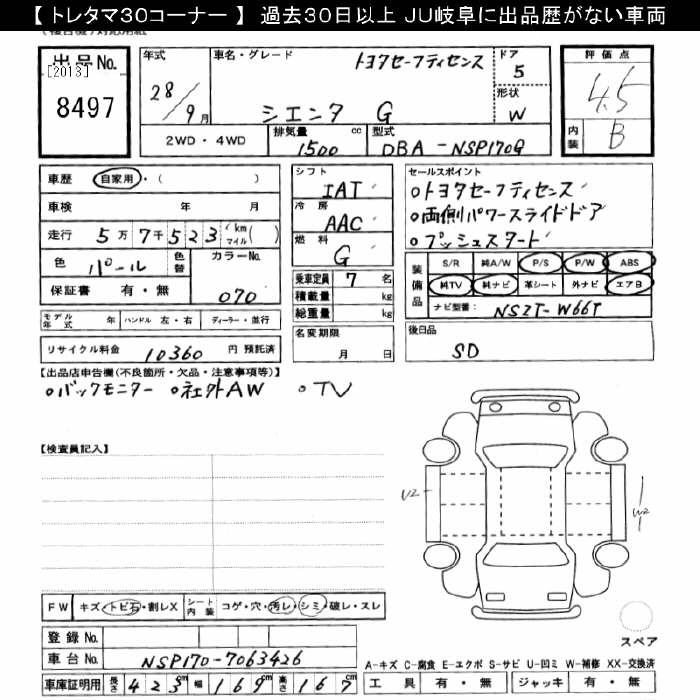 【 トレタマ30コーナー 】 過去30日以上 JU岐阜に出品歴がない車両
出品No.
[2013]
8497
年式
28/9月
車名・グレード
トヨタセーフティセンス
シエンタ G
ドア
5
形状
W
評価点
4.5
内装
B
2WD・4WD
排気量
1500 cc
型式
DBA-NSP170G
車歴 自家用・( )
車検 年 月
走行 5万7千523 (km マイル)( )
色 パール 色替
カラーNo.
070
保証書 有・無
モデル年式 年 ハンドル 左・右 ディーラー・並行
リサイクル料金 10360 円 預託済
シフト
IAT
冷房
AAC
燃料
G
乗車定員 7 名
積載量 kg
総重量 kg
名変期限
月 日
セールスポイント
○トヨタセーフティセンス
○両側パワースライドドア
○プッシュスタート
装備品
S/R 純A/W P/S P/W ABS
純TV 純ナビ 革シート 外ナビ エアB
ナビ型番: NSZT-W66T
後日品
SD
【出品店申告欄(不良箇所・欠品・注意事項等)】
○バックモニター ○社外AW ○TV
【検査員記入】
U2
W2
FW キズ・トビ石・割レX シート内装 コゲ・穴・汚レ・シミ・破レ・スレ
登録No.
車台No. NSP170-7063426
車庫証明用 長さ 423cm 幅 169cm 高さ 167cm
スペア
A-キズ C-腐食 E-エクボ S-サビ U-凹ミ W-補修 XX-交換済
工具 有・無 ジャッキ 有・無